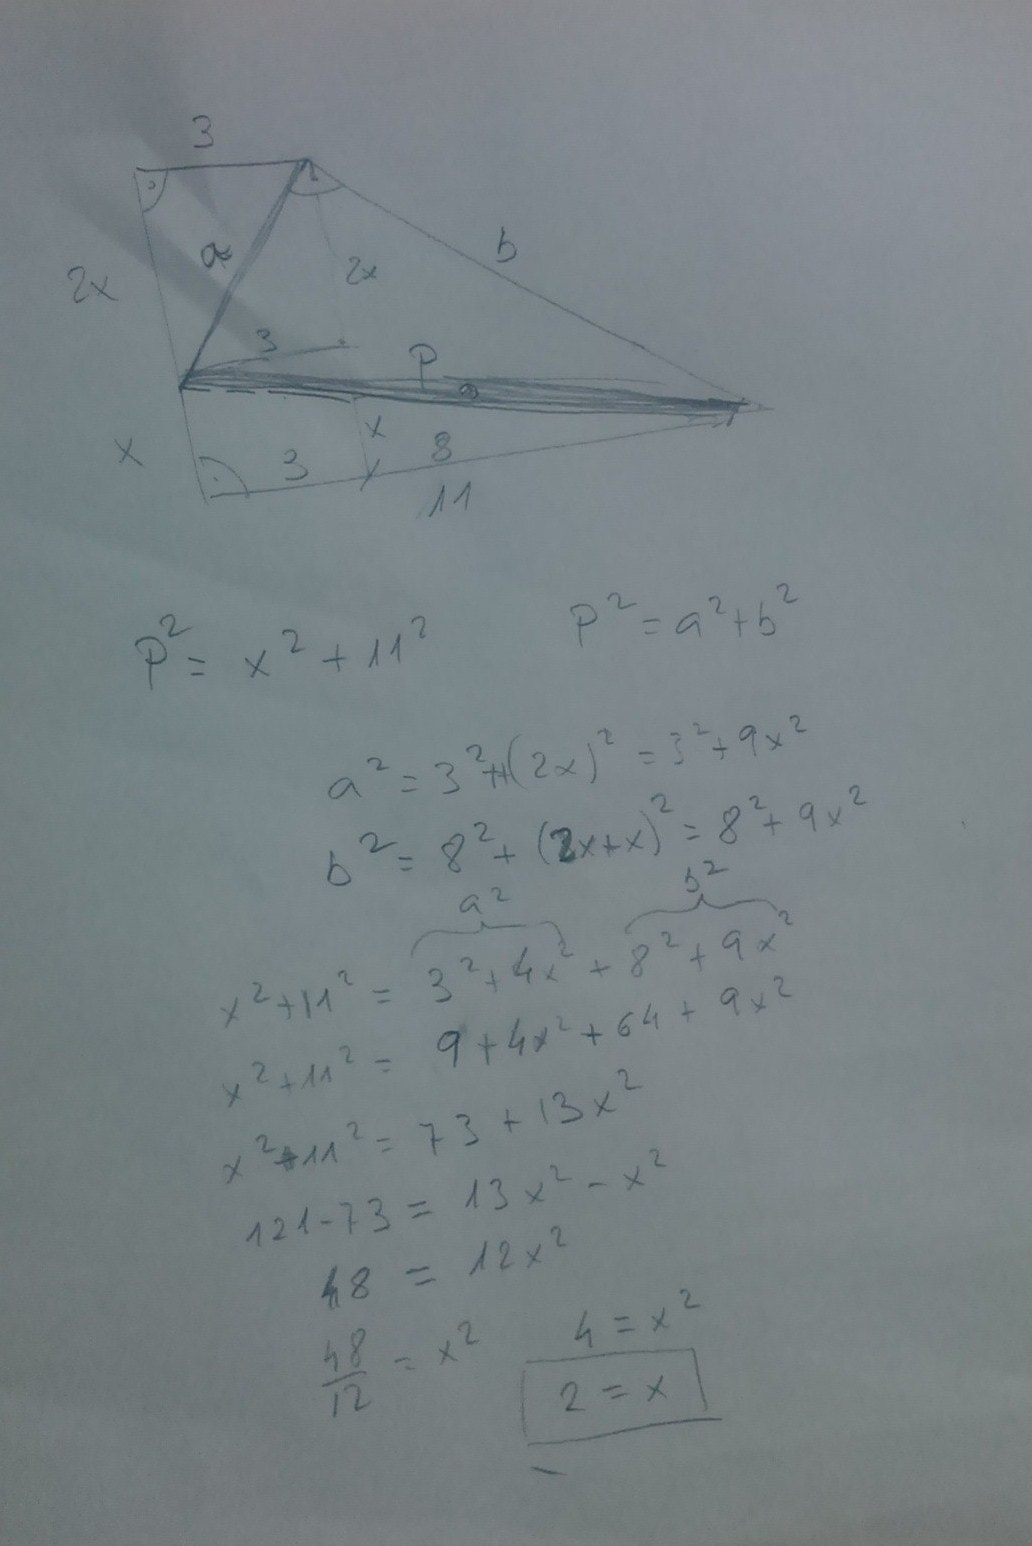 3
a
b
2x
2x
3
P
x
x
3
8
11
P² = x² + 11²
P² = a² + b²
a² = 3² + (2x)² = 3² + 9x²
b² = 8² + (2x+x)² = 8² + 9x²
a² b²
x² + 11² = 3² + 4x² + 8² + 9x²
x² + 11² = 9 + 4x² + 64 + 9x²
x² + 11² = 73 + 13x²
121 - 73 = 13x² - x²
48 = 12x²
48/12 = x²
4 = x²
2 = x